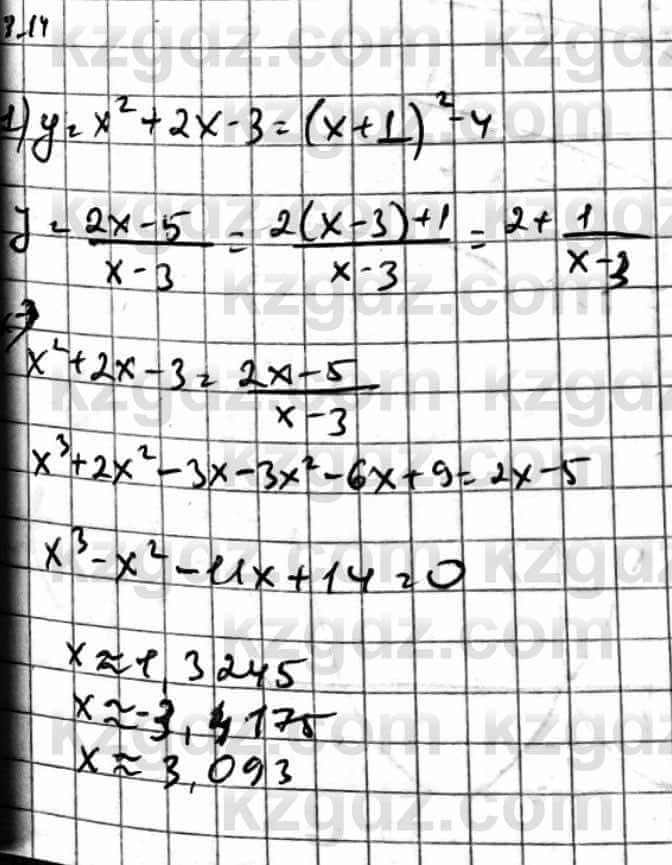 1) y = x² + 2x - 3 = (x + 1)² - 4
y = (2x - 5)/(x - 3) = (2(x - 3) + 1)/(x - 3) = 2 + 1/(x - 3)
x² + 2x - 3 = (2x - 5)/(x - 3)
x³ + 2x² - 3x - 3x² - 6x + 9 = 2x - 5
x³ - x² - 11x + 14 = 0
x ≈ 1,3245
x ≈ -3,4175
x ≈ 3,093
kzgdz.com